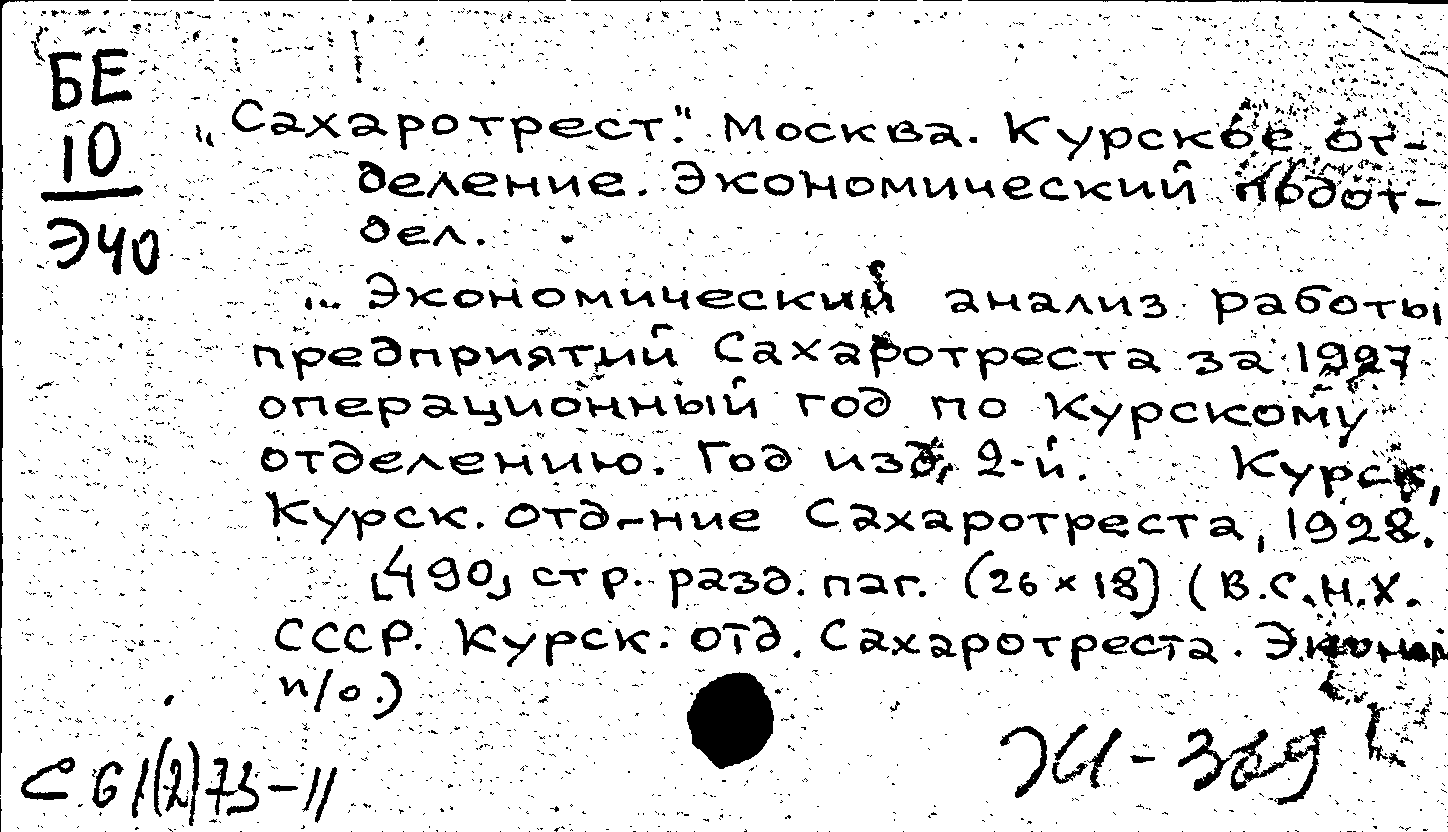 БЕ
10
Э40
„Сахаротрест". Москва. Курское от-
деление. Экономический подот-
дел.
... Экономический анализ работы
предприятий Сахаротреста за 1927
операционный год по Курскому
отделению. Год изд. 2-й. Курск,
Курск. отд-ние Сахаротреста, 1928.
[490] стр. разд. паг. (26 × 18) (В.С.Н.Х.
СССР. Курск. отд. Сахаротреста. Эконом
п/о.)
С61(2)73-11